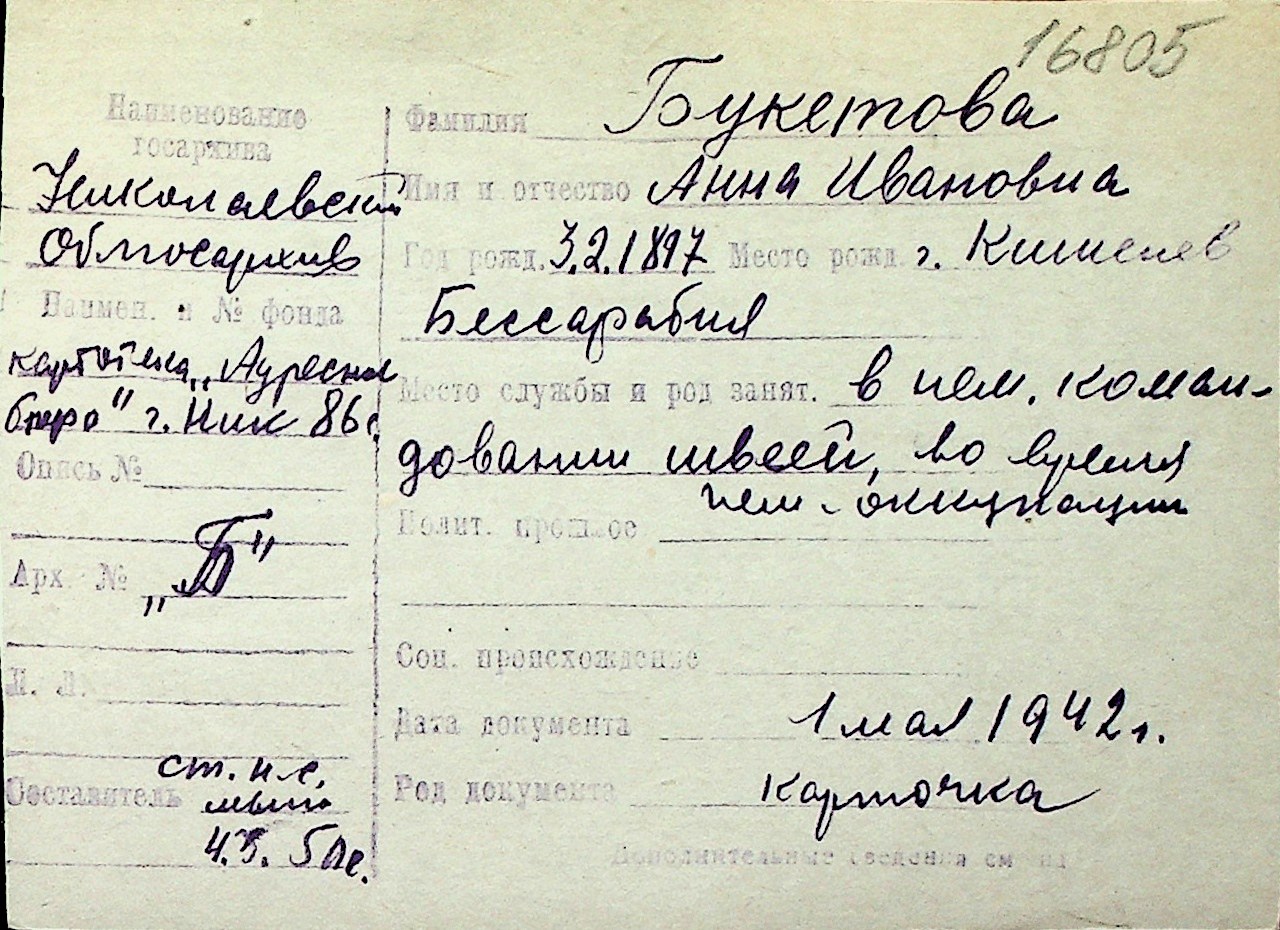 16805
Наименование
госархива
Николаевский
Облгосархив
Наимен. и № фонда
картотека „Адресное
бюро" г. Ник
Опись №
Арх. №
„Б"
Л. Л.
Составитель
ст. н. с.
4.
Фамилия Букетова
Имя и отчество Анна Ивановна
Год рожд. 3.2.1897 Место рожд. г. Кишенев
Бессарабия
Место службы и род занят. в нем. коман-
довании швеей, во время
нем. оккупации
Полит. прошлое
Соц. происхождение
Дата документа 1 мая 1942 г.
Род документа карточка
Дополнительные сведения см на